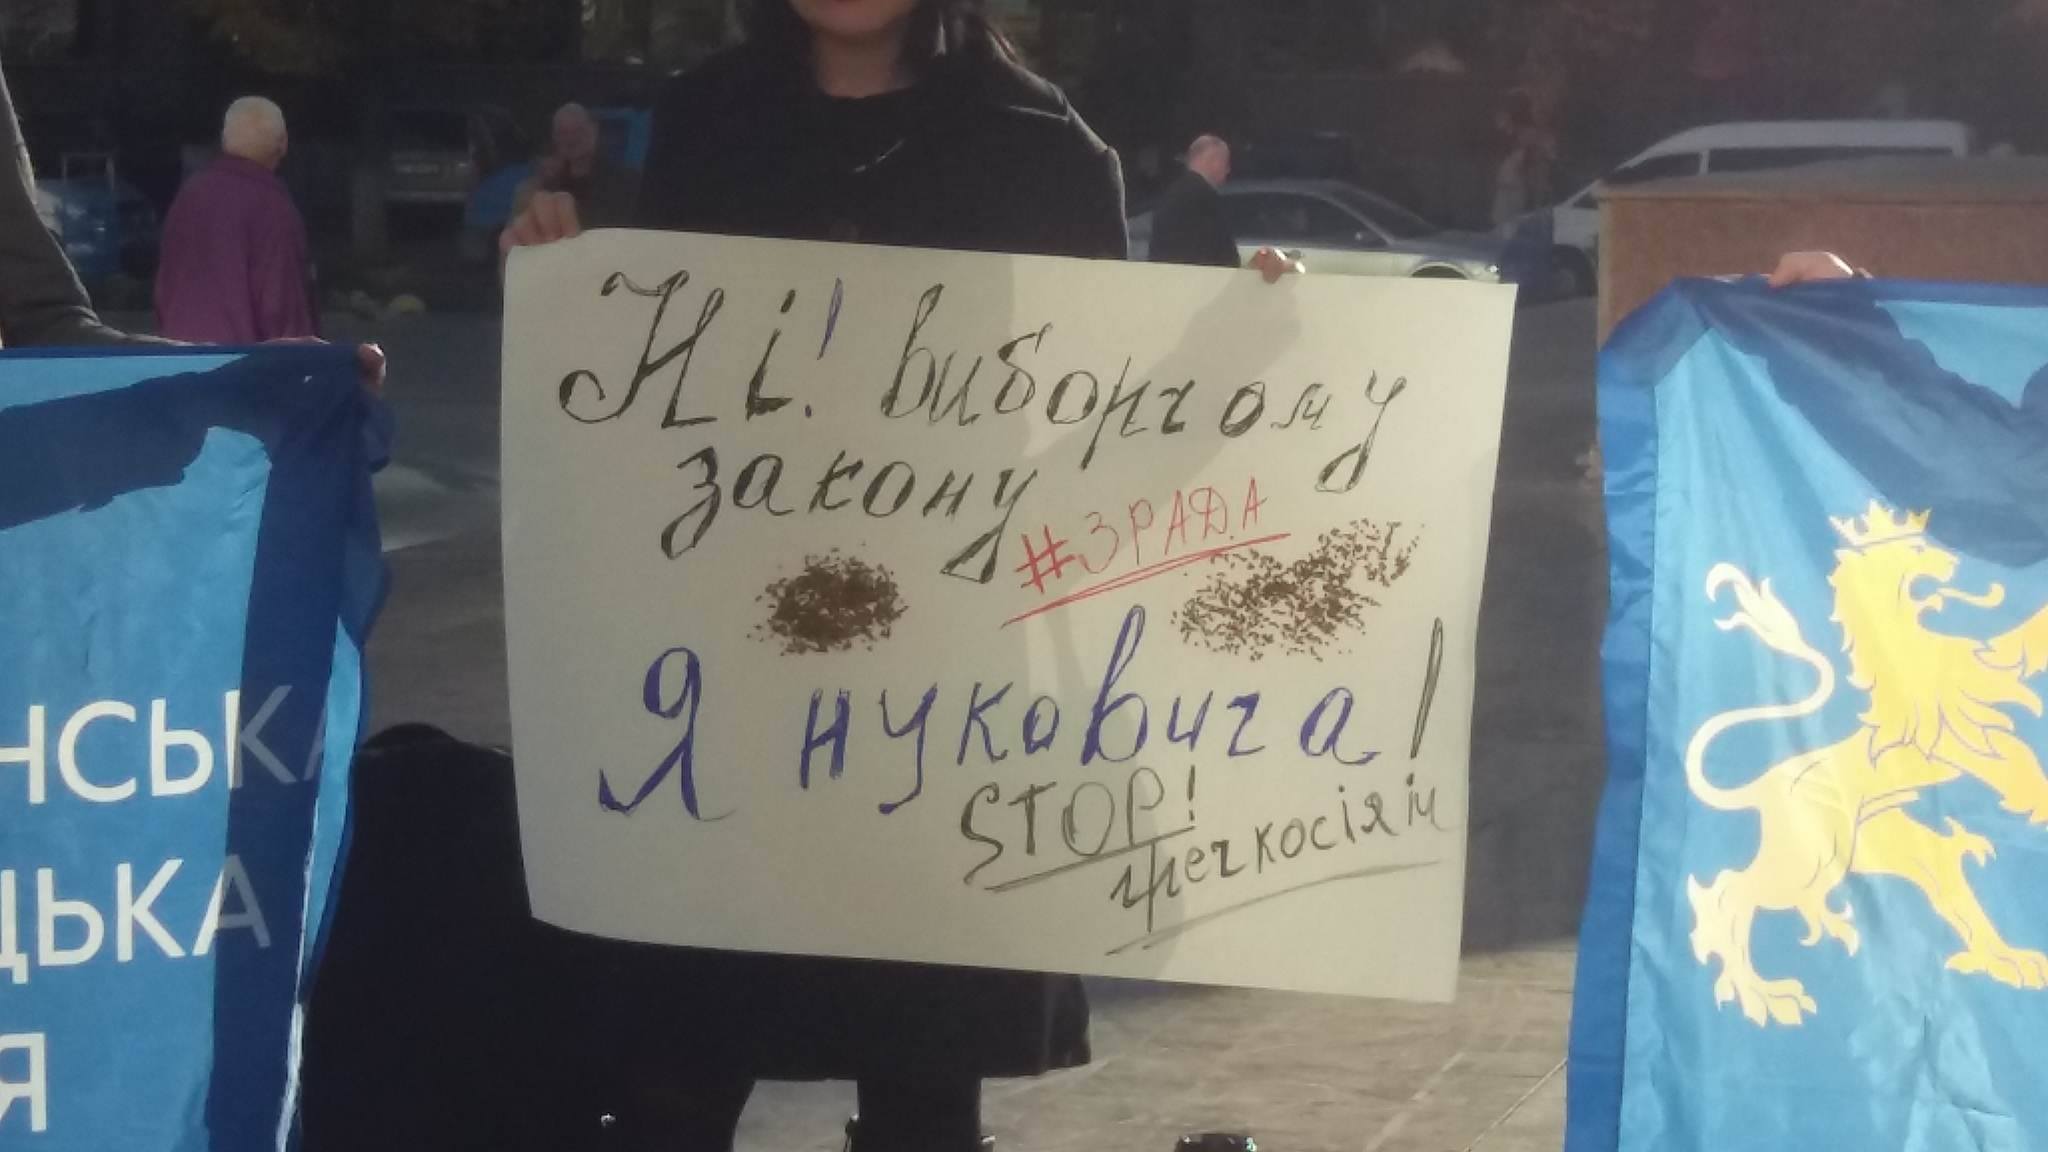 Ні! виборчому
закону
#ЗРАДА
Януковича!
STOP!
гречкосіям
НСЬКА
ЦЬКА
Я